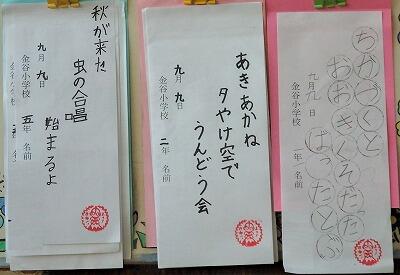 ちかづくと
おおきくそだた
ばったとぶ
九月九日
金谷小学校 一年 名前
あきあかね
夕やけ空で
うんどう会
九月九日
金谷小学校 二年 名前
秋が来た
虫の合唱
始まるよ
九月九日
金谷小学校 五年 名前